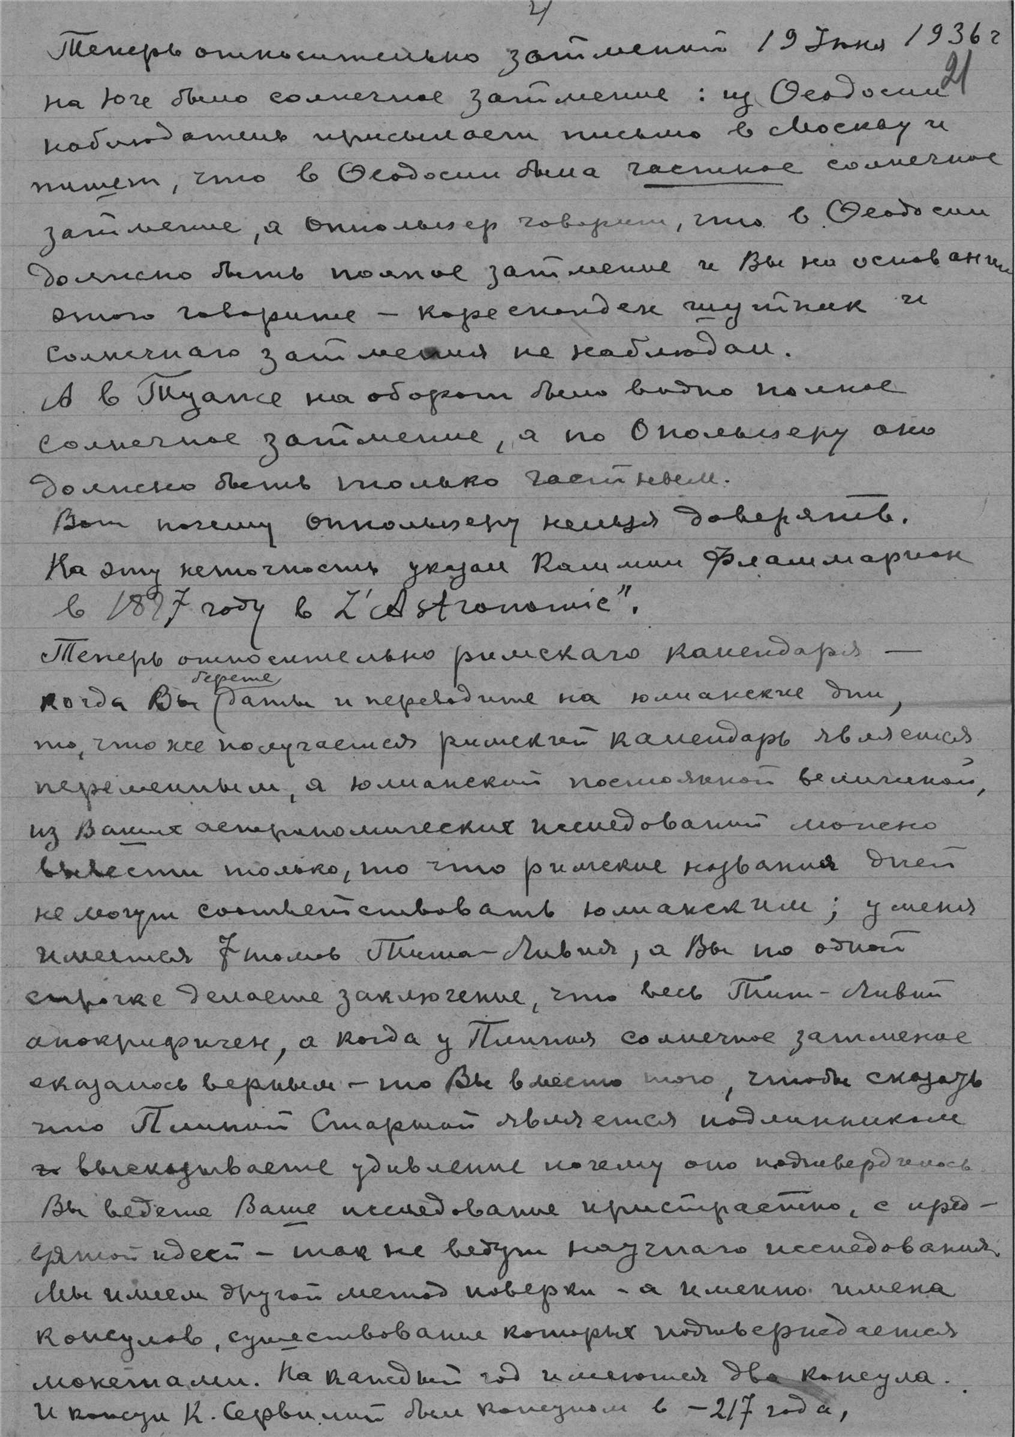 2)
Теперь относительно затмений 19 Июня 1936 г
21
на юге было солнечное затмение: из Феодосии
наблюдатель присылает письмо в Москву и
пишет, что в Феодосии была частное солнечное
затмение, а Оппольцер говорит, что в Феодосии
должно быть полное затмение и Вы на основании
этого говорите – кореспонден шутник и
солнечнаго затмения не наблюдал.
А в Туапсе на оборот было видно полное
солнечное затмение, а по Опольцеру оно
должно быть только частным.
Вот почему Оппольцеру нельзя доверять.
На эту неточность указал Каммил Фламмарион
в 1897 году в L'Astronomie".
Теперь относительно римскаго календаря –
берете
когда Вы даты и переводите на юлианские дни,
то, что же получается римский календарь является
переменным, а юлианский постоянной величиной,
из Ваших астрономических исследований можно
вывести только, то что римские названия дней
не могут соответствовать юлианским; у меня
имеется 7 томов Тита-Ливия, а Вы по одной
строчке делаете заключение, что весь Тит-Ливий
апокрифичен, а когда у Плиния солнечное затмение
оказалось верным – то Вы вместо того, чтобы сказать
что Плиний Старший является подлинником
высказываете удивление почему оно подтвердилось
Вы ведете Ваше исследование пристрастно, с пред-
взятой идеей – так не ведут научнаго исследования.
Мы имеем другой метод поверки – а именно имена
консулов, существование которых подтверждается
монетами. На каждый год имеются два консула.
И консул К. Сервилий был консулом в –217 года,